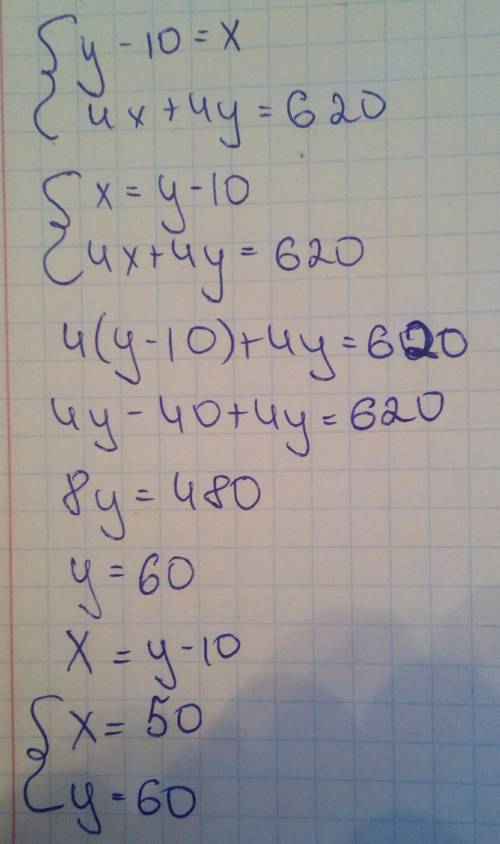 y - 10 = x
4x + 4y = 620
x = y - 10
4x + 4y = 620
4(y - 10) + 4y = 620
4y - 40 + 4y = 620
8y = 480
y = 60
x = y - 10
x = 50
y = 60